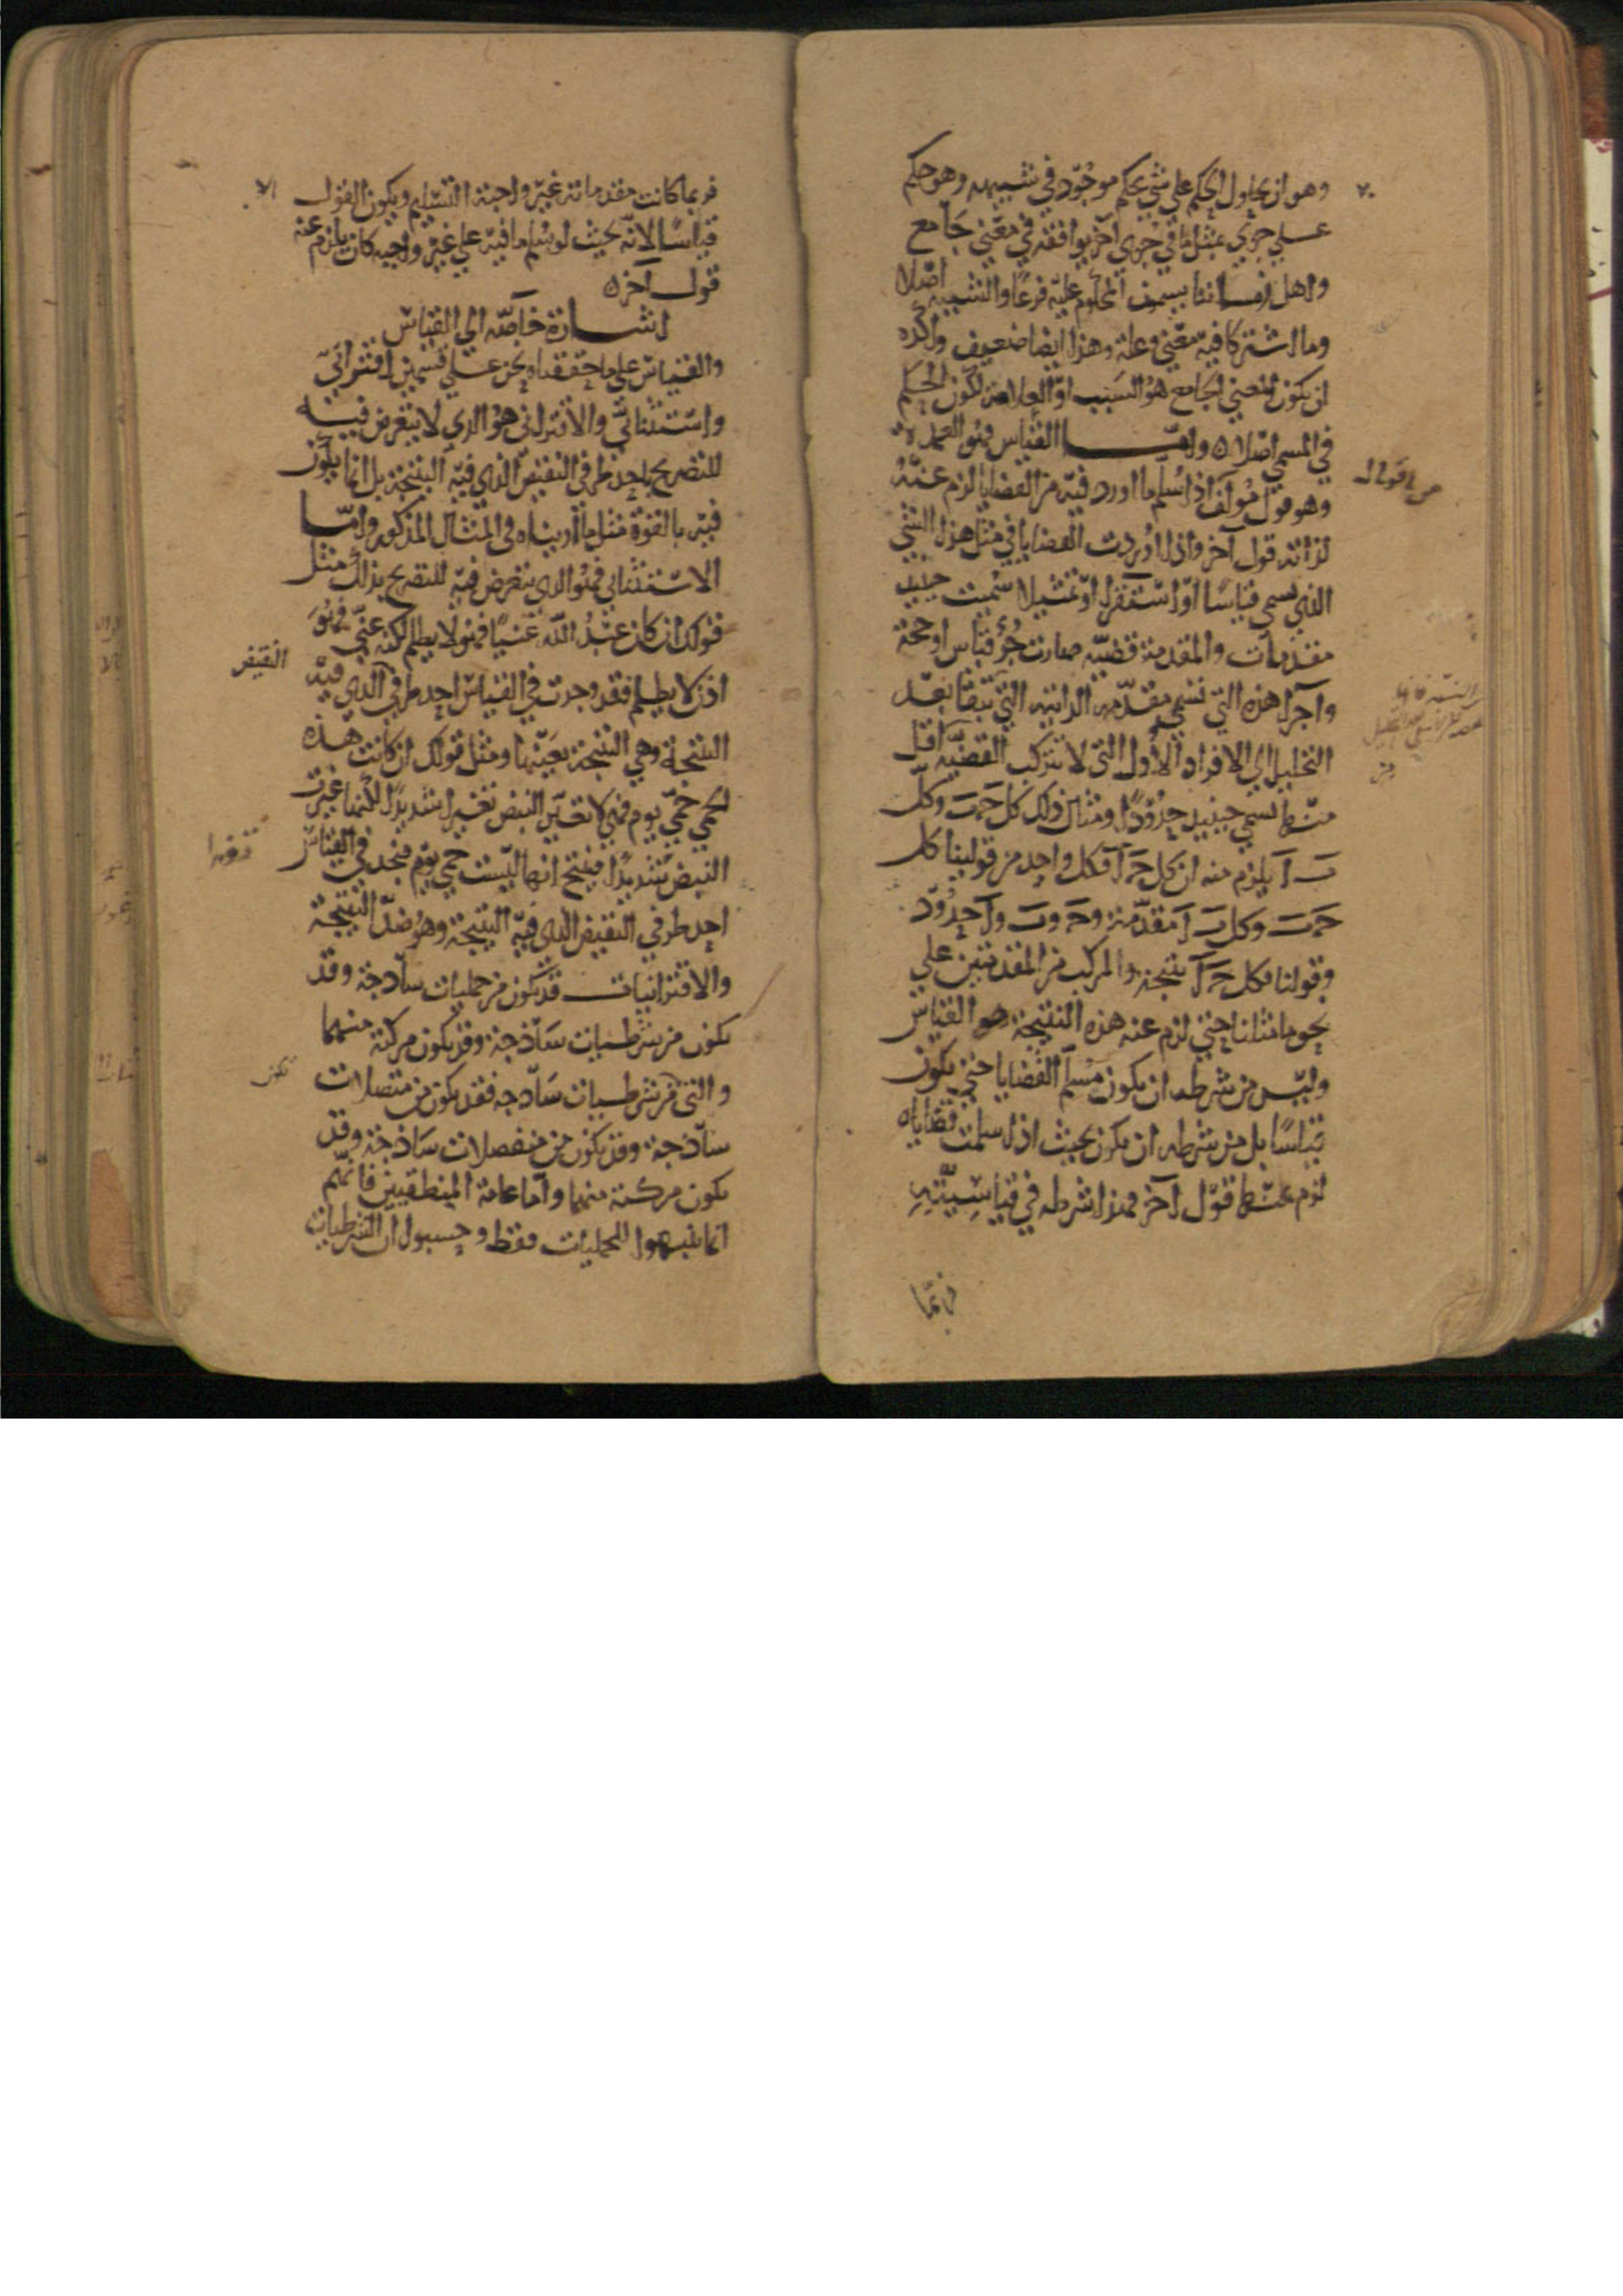 وهو ان يحاول الحكم على شي بحكم موجود في شبيهه وهو حكم
على جزي بمثل ما في جزي آخر يوافقه في معني جامع
واهل زماننا يسمون المحكوم عليه فرعا والشبيه اصلا
وما اشتركا فيه معني وعلة وهذا ايضا ضعيف وآكده
ان يكون المعني الجامع هو السبب او العلامة لكون الحكم
في المسمي اصلا ه واما القياس فهو العمدة
وهو قول مؤلف اذا سلم ما اورد فيه من القضايا لزم عنه
لذاته قول آخر واذا اوردت القضايا في مثل هذا الشي
الذي يسمي قياسا او استقرا او تمثيلا سميت حينيذ
مقدمات والمقدمة قضية صارت جزؤ قياس او حجة
واجزا هذه التي تسمي مقدمة الذاتية التي تبقا بعد
التحليل الي الافراد الاول التي لا تتركب القضية اقل
منها تسمي حينيذ حدودا ومثال ذلك كل حَ بَ وكل
بَ اَ يلزم منه ان كل حَ اَ فكل واحد من قولينا كل
حَ بَ وكل بَ اَ مقدمة وحَ وبَ واَ حدود
وقولنا فكل حَ اَ نتيجة والمركب من المقدمتين علي
نحو ما مثلنا حتي لزم عنه هذه النتيجة هو القياس
وليس من شرطه ان يكون مسلم القضايا حتي يكون
قياسا بل من شرطه ان يكون بحيث اذا سلمت قضاياه
لزم عنها قول آخر فهذا شرطه في قياسيته
فربما
من اقواله
فربما كانت مقدماته غير واجبة التسليم ويكون القول
قياسا لانه بحيث لو سلم ما فيه علي غير واجبه كان يلزم عنه
قول آخر ه
اشارة خاصة الي القياس
والقياس علي ما حققناه نحن علي قسمين اقتراني
واستثنائي والاقتراني هو الذي لا يتعرض فيه
للتصريح باحد طرفي النقيض الذي فيه النتيجة بل انما يكون
فيه بالقوة مثل ما اريناه في المثال المذكور واما
الاستثنائي فهو الذي يتعرض فيه للتصريح بذلك مثل
قولك ان كان عبد الله غنيا فهو لا يظلم لكنه غني فهو
اذن لا يظلم فقد وجدت في القياس احد طرفي الذي فيه
النقيض
النتيجة وهي النتيجة بعينها ومثل قولك ان كانت هذه
الحمي حمي يوم فهي لا تغير النبض تغييرا شديدا لكنها غيرت
النبض شديدا فينتج انها ليست حمي يوم فتجد في القياس
احد طرفي النقيض الذي فيه النتيجة وهو ضد النتيجة
والاقترانيات قد يكون من حمليات ساذجة وقد
يكون من شرطيات ساذجة وقد يكون مركبة منهما
والتي من شرطيات ساذجة فقد يكون من متصلات
تكون
ساذجة وقد يكون من منفصلات ساذجة وقد
يكون مركبة منهما واما عامة المنطقيين فانهم
انما تنبهوا للحمليات فقط وحسبوا ان الشرطيات